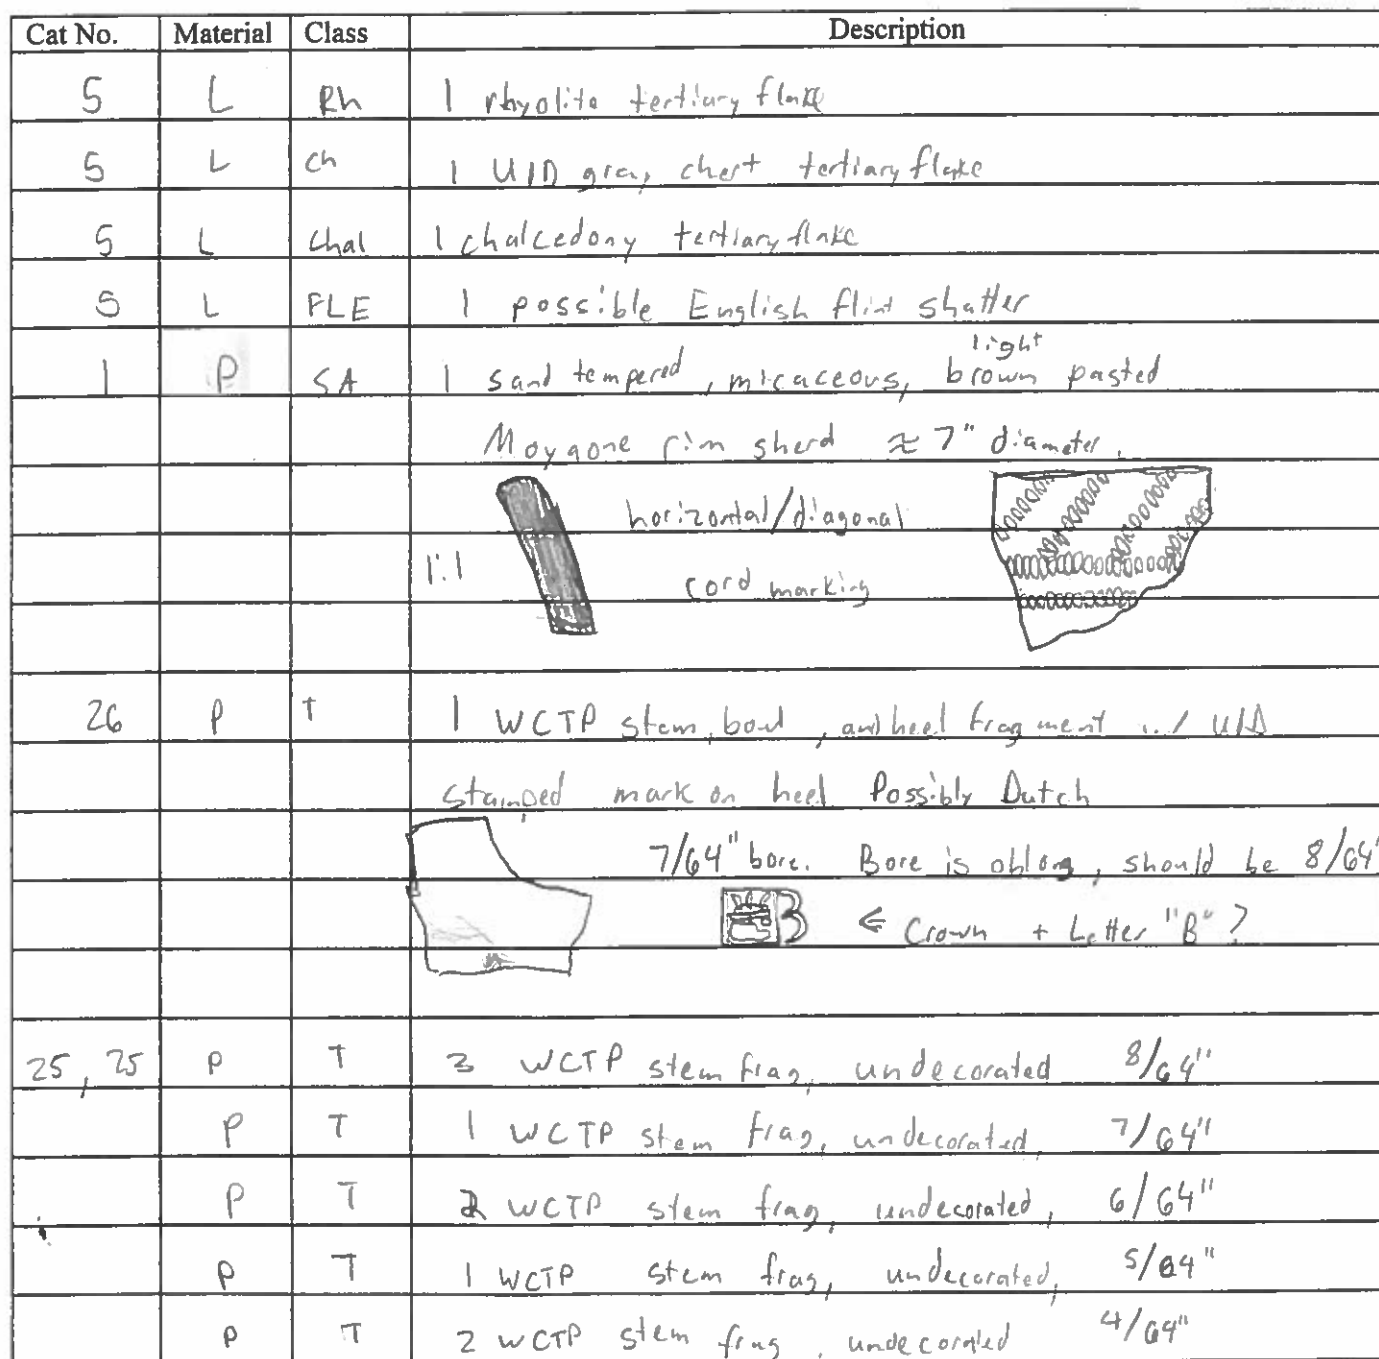 Cat No. Material Class Description
5 L Rh 1 rhyolite tertiary flake
5 L Ch 1 UID gray chert tertiary flake
5 L Chal 1 chalcedony tertiary flake
5 L FLE 1 possible English flint shatter
light
1 P SA 1 sand tempered, micaceous, brown pasted
Moyaone rim sherd ≈ 7" diameter.
horizontal/diagonal
1:1 cord marking
26 P T 1 WCTP stem, bowl, and heel fragment w/ UID
stamped mark on heel Possibly Dutch
7/64" bore. Bore is oblong, should be 8/64"
← Crown + Letter "B"?
25, 25 P T 3 WCTP stem frag, undecorated 8/64"
P T 1 WCTP stem frag, undecorated, 7/64"
P T 2 WCTP stem frag, undecorated, 6/64"
P T 1 WCTP stem frag, undecorated, 5/64"
P T 2 WCTP stem frag, undecorated 4/64"